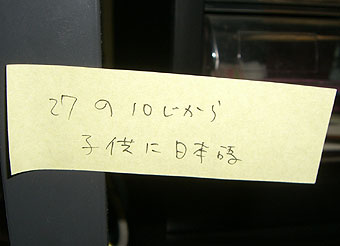 27の10じから
子供に日本語